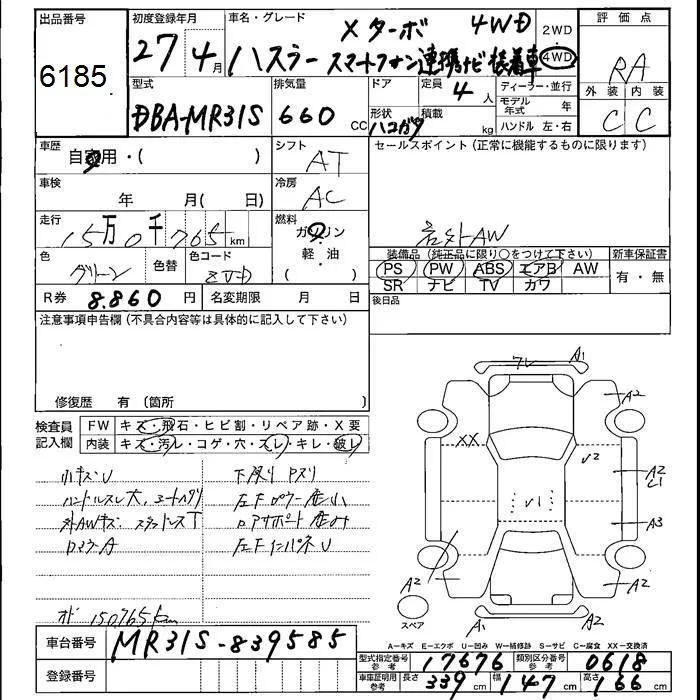 出品番号
6185
初度登録年月
27 4月
車名・グレード
Xターボ 4WD
ハスラー スマートフォン連携ナビ装着車
2WD
4WD
評価点
RA
外装 内装
C C
型式
DBA-MR31S
排気量
660 CC
ドア
形状
ハコガタ
定員
4人
積載
kg
ディーラー・並行
モデル年式 年
ハンドル 左・右
車歴
自家用・( )
シフト
AT
セールスポイント(正常に機能するものに限ります)
社外AW
車検
年 月( 日)
冷房
AC
走行
15万0千765km
燃料
ガソリン
軽・油
( )
色
グリーン
色替
色コード
ZVD
装備品(純正品に限り○をつけて下さい)
PS PW ABS エアB AW
SR ナビ TV カワ
新車保証書
有・無
R券 8.860円
名変期限 月 日
後日品
注意事項申告欄(不具合内容等は具体的に記入して下さい)
修復歴 有(箇所
検査員記入欄
FW キズ・飛石・ヒビ割・リペア跡・X要
内装 キズ・汚レ・コゲ・穴・スレ・キレ・破レ
小キズU
ハンドルスレ大、シートヘタリ
外AWキズ スタッドレスT
ロアラーA
下廻りPスリ
左Fピラー歪小
左FインパネU
オド 150765km
ワレ A1
A2
XX
V2
V1
A2
C1
A3
A2
A2
A1
A2
スペア
A-キズ E-エクボ U-凹み W-補修跡 S-サビ C-腐食 XX-交換済
車台番号 MR31S-839585
登録番号
型式指定番号参考 17676
類別区分番号参考 0618
車庫証明用参考 長さ 339cm 幅 147cm 高さ 166cm